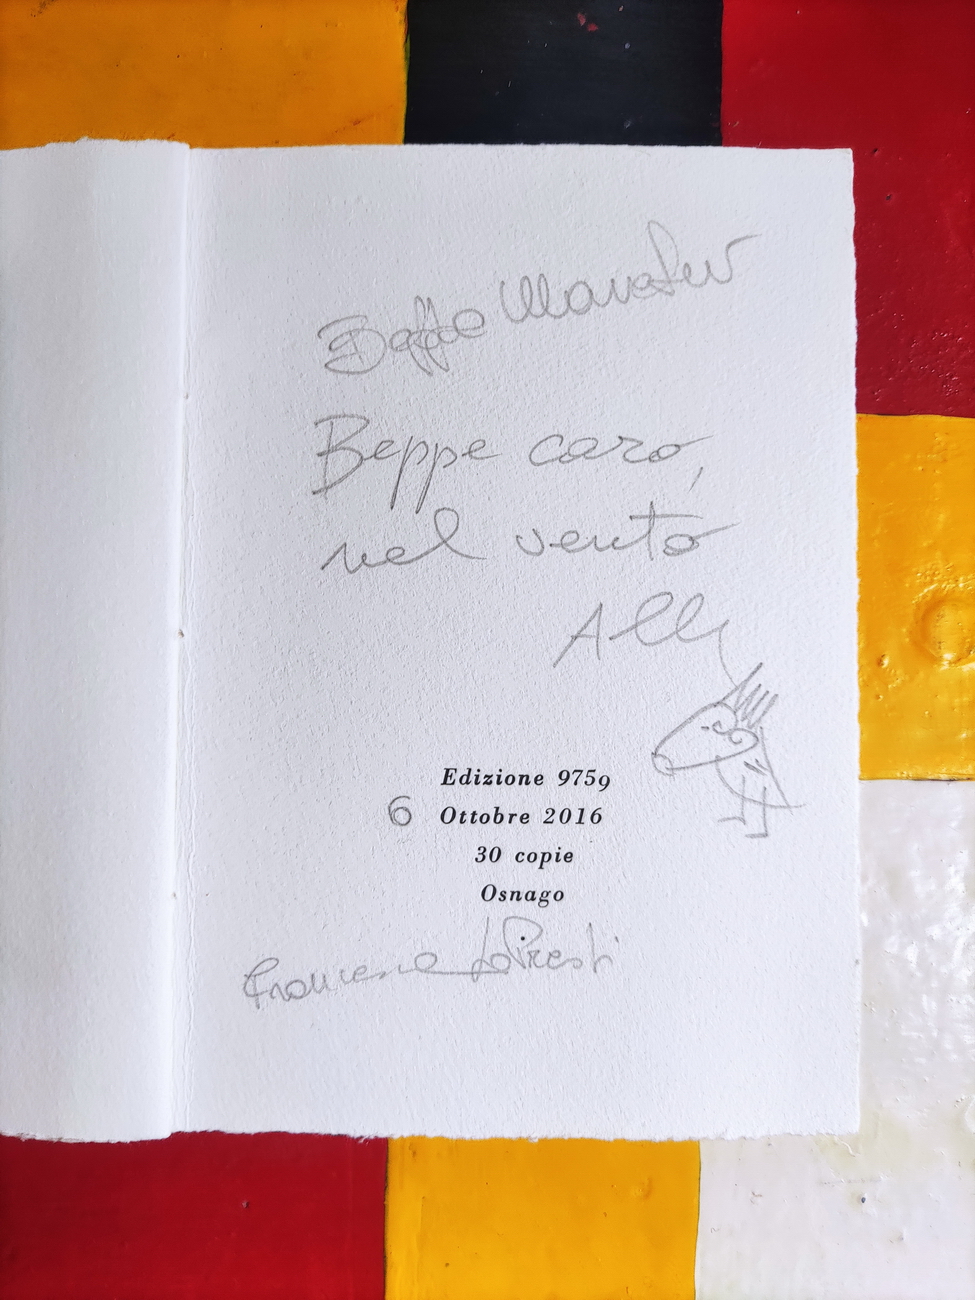 Beppe caro,
nel vento
Edizione 9759
6 Ottobre 2016
30 copie
Osnago
Francesca Lo Presti